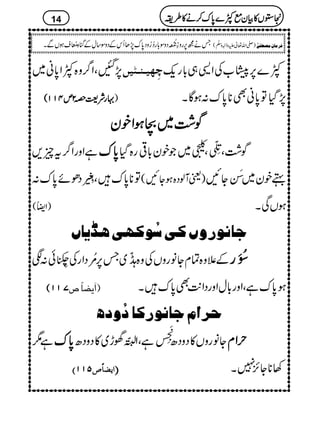 14
نجاستوں کا بیان مع کپڑے پاک کرنے کا طریقہ
فرمانِ مصطفےٰ (صلی اللہ تعالیٰ علیہ واٰلہٖ وسلّم) جس نے مجھ پر روزِ جُمعہ دو سو بار دُرُودِ پاک پڑھا اُس کے دو سو سال کے گناہ مُعاف ہوں گے۔
کپڑے پر پیشاب کی ایسی ہی باریک چھینٹیں پڑگئیں، اگر وہ کپڑا پانی میں
پڑ گیا تو پانی بھی ناپاک نہ ہوگا۔ (بہارِشریعت حصہ۲ ص۱۱۴)
گوشت میں بچا ہوا خون
گوشت، تِلّی، کلیجی میں جو خون باقی رہ گیا پاک ہے اور اگر یہ چیزیں
بہتے خون میں سَن جائیں (یعنی آلودہ ہو جائیں) تو ناپاک ہیں، بغیر دھوئے پاک نہ
ہوں گی۔ (ایضاً)
جانوروں کی سُوکھی ھڈیاں
سُؤَر کے علاوہ تمام جانوروں کی وہ ہڈّی جس پر مُردار کی چکنائی نہ لگی
ہو پاک ہے، اور بال اور دانت بھی پاک ہیں۔ (ایضاً ص ۱۱۷)
حرام جانور کا دُودھ
حرام جانوروں کا دودھ نَجِس ہے، البتہ گھوڑی کا دودھ پاک ہے مگر
کھانا جائز نہیں۔ (ایضاً ص ۱۱۵)